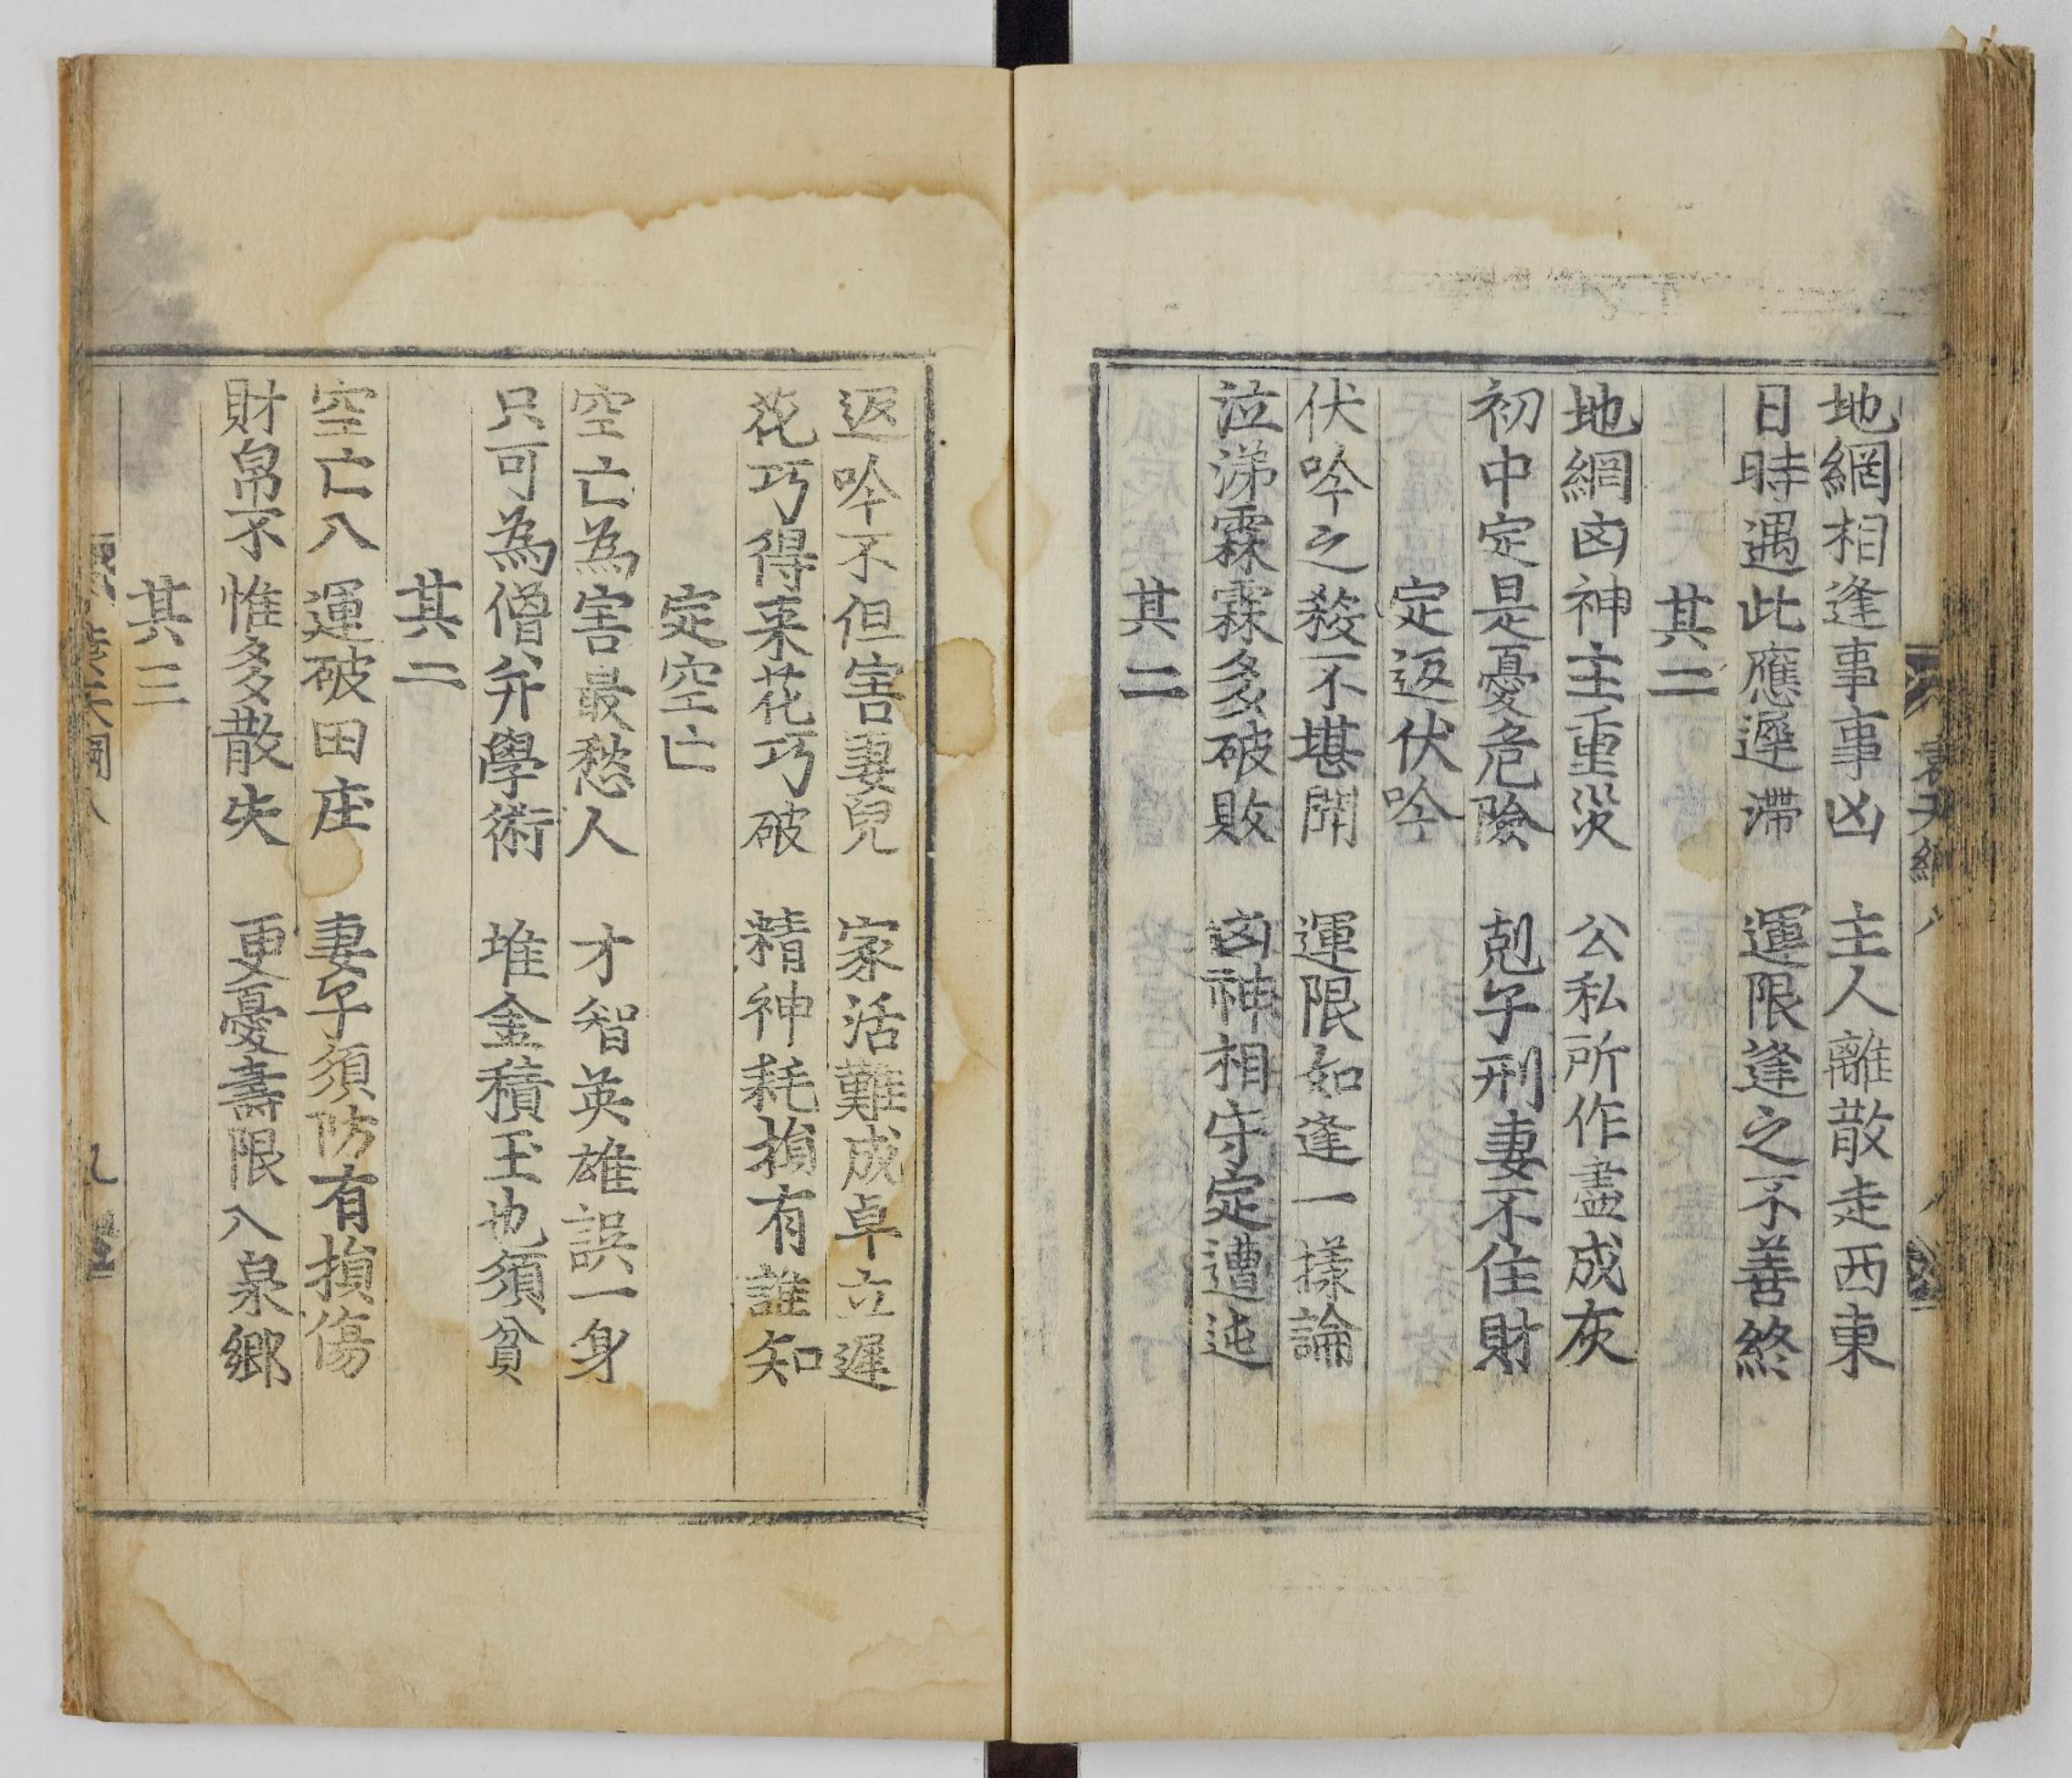 地網相逢事事凶　主人離散走西東
日時遇此應遲滯　運限逢之不善終
其二
地網凶神主重災　公私所作盡成灰
初中定是憂危險　剋子刑妻不住財
定返伏吟
伏吟之殺不堪聞　運限如逢一㨾論
泣涕霖霖多破敗　凶神相守定遭迍
其二
返吟不但害妻兒　家活難成卓立遲
花巧得来花巧破　精神耗損有誰知
定空亡
空亡為害最愁人　才智英雄誤一身
只可為僧并學術　堆金積玉也須貧
其二
空亡入運破田庄　妻子須防有損傷
財帛不惟多散失　更憂壽限入泉鄉
其三